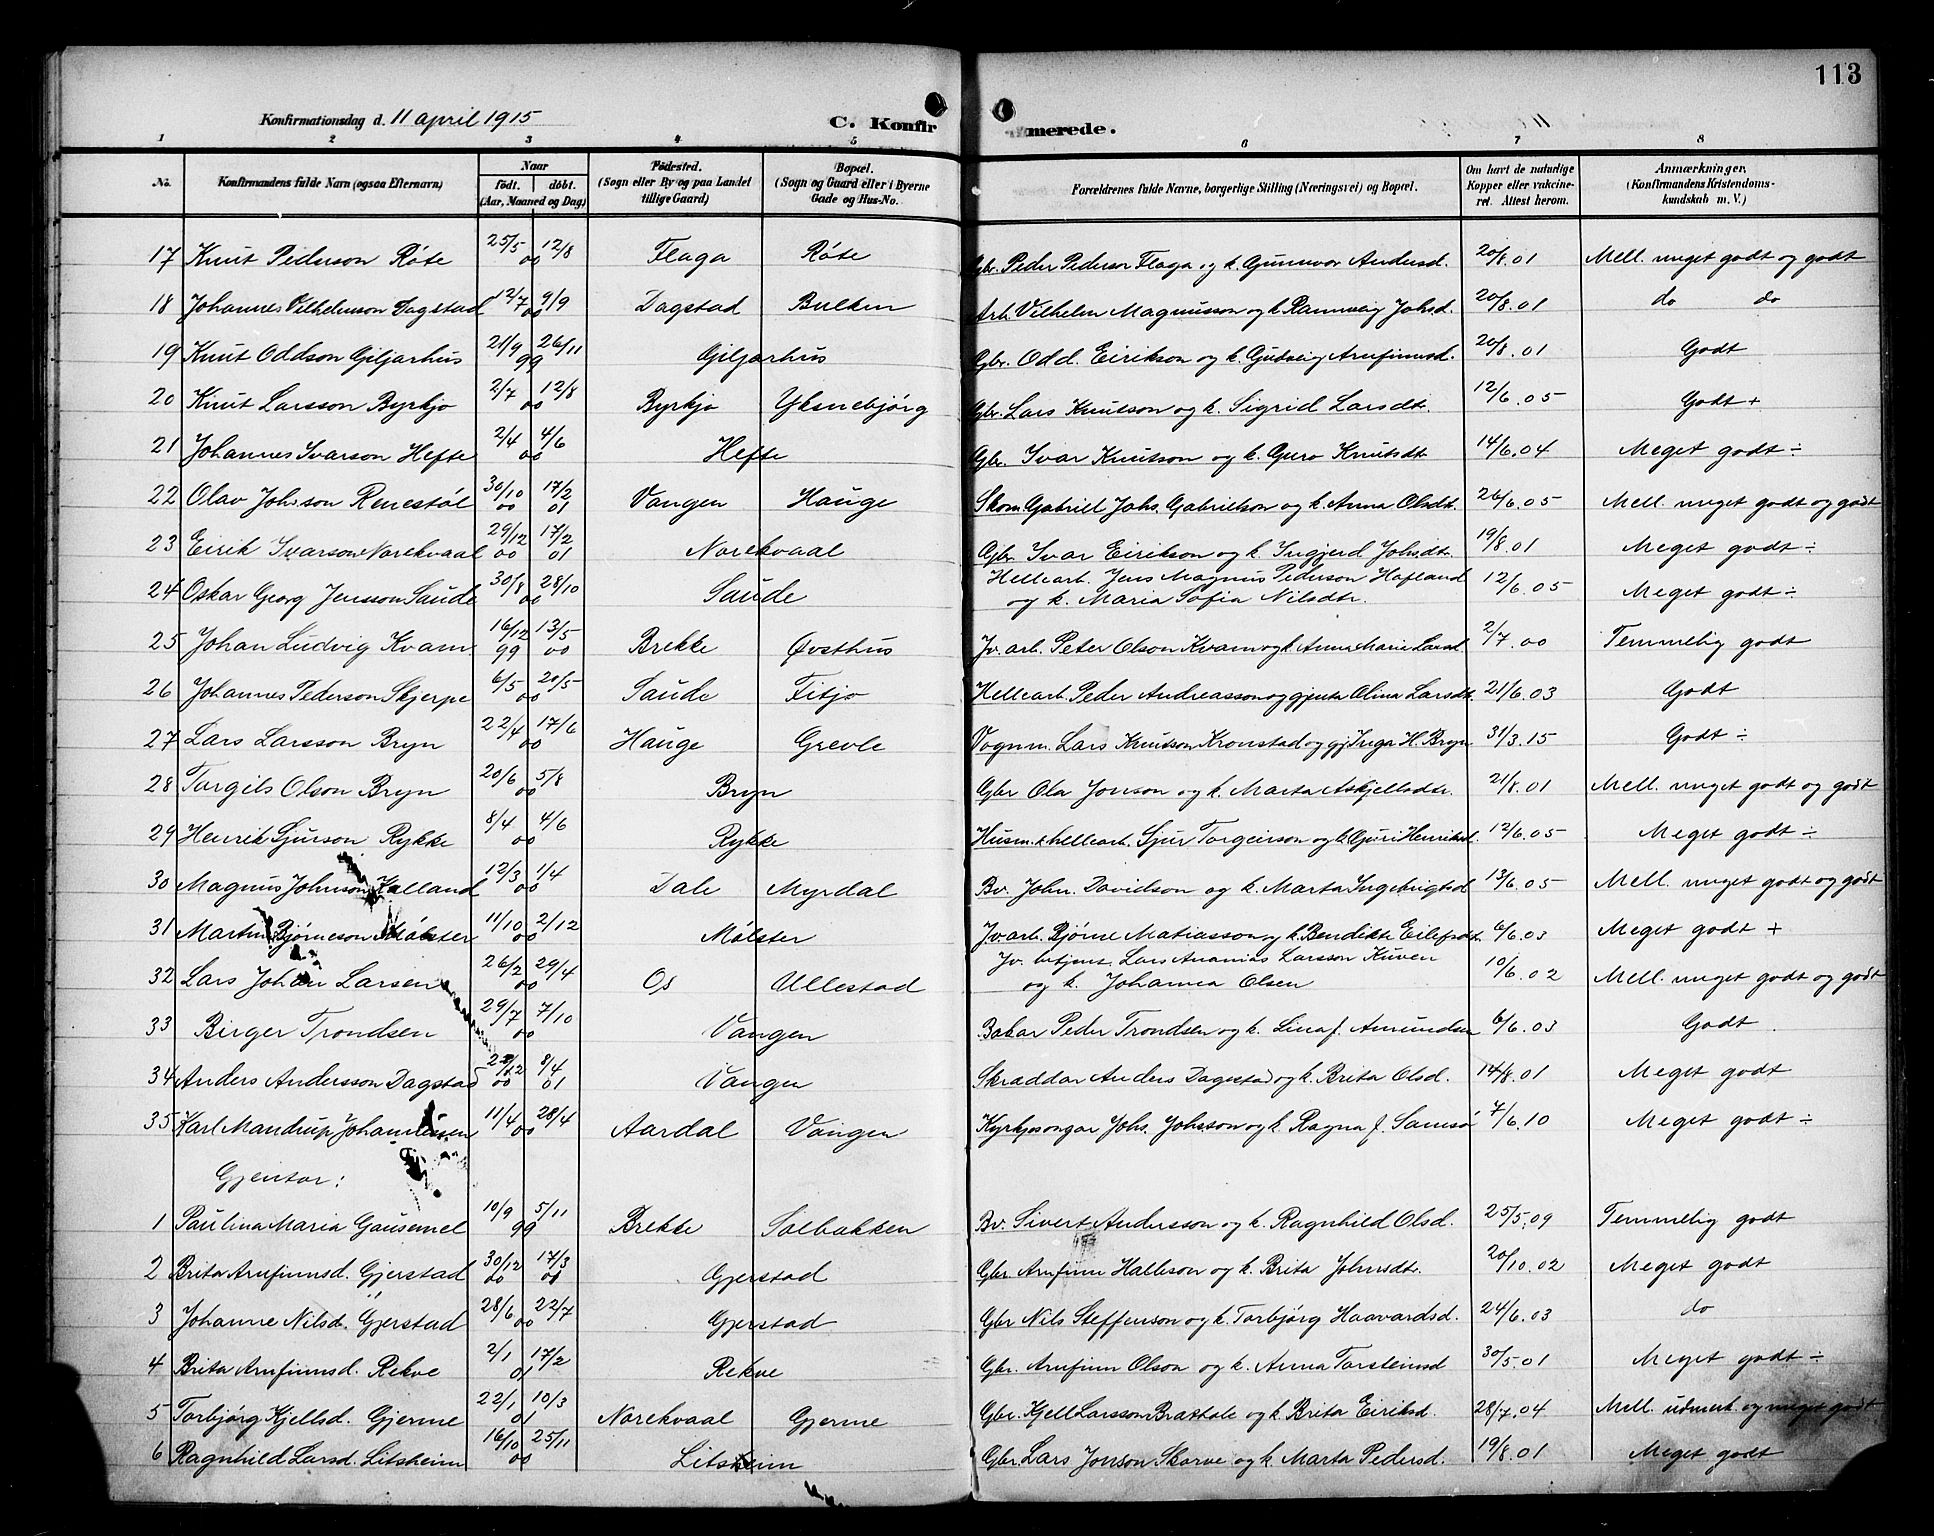 113
Konfirmationsdag d. 11 april 1915
C. Konfirmerede.
1 2 3 4 5 6 7 8
No. Konfirmandens fulde Navn (ogsaa Efternavn) Naar født. døbt. (Aar, Maaned og Dag) Fødested. (Sogn eller By og paa Landet tillige Gaard) Bopæl. (Sogn og Gaard eller i Byerne Gade og Hus-No. Forældrenes fulde Navne, borgerlige Stilling (Næringsvei) og Bopæl. Om havt de naturlige Kopper eller vakcineret. Attest herom. Anmærkninger. (Konfirmandens Kristendomskundskab m. V.)
17 Knut Pederson Røte 25/5 12/8 00 Flaga Røte Gbr. Peder Pederson Flaga og k. Gunnvor Andersd. 20/8.01 Mell. meget godt og godt
18 Johannes Vilhelmson Dagstad 12/7 9/9 00 Dagstad Bulken Arb. Vilhelm Magnusson og k. Rannveig Johsd. 20/8.01 do do
19 Knut Oddson Giljarhus 21/9 26/11 99 Giljarhus Gbr. Odd Eirikson og k. Gudveig Arnfinnsd. 20/8.01 Godt
20 Knut Larsson Byrkjo 2/7 12/8 00 Byrkjo Yksnebjørg Gbr. Lars Knutson og k. Sigrid Larsdt. 12/6.05 Godt +
21 Johannes Ivarson Hefte 2/4 4/6 00 Hefte Gbr. Ivar Knutson og k. Guro Knutsdt. 14/6.04 Meget godt ÷
22 Olav Johsson Renestøl 30/10 00 17/2 01 Vangen Hauge Skom. Gabriel Johs. Gabrielson og k. Anna Olsdt. 26/6.05 Mell. meget godt og godt
23 Eirik Ivarson Norekvaal 29/12 00 17/2 01 Norekvaal Gbr. Ivar Eirikson og k. Ingjerd Johsdt. 19/8.01 Meget godt ÷
24 Oskar Georg Jensson Saude 30/8 28/10 00 Saude Hellearb. Jens Magnus Pederson Hafland og k. Maria Sofia Nilsdtr. 12/6.05 Meget godt ÷
25 Johan Ludvig Kvam 16/12 99 13/5 00 Brekke Øvsthus Jv. arb. Peter Olson Kvam og k. Anna Marie Larsd 2/7.00 Temmelig godt
26 Johannes Pederson Skjerpe 6/5 20/5 00 Saude Fitjo Hellearb. Peder Andreasson og gjenta Olina Larsdt. 21/6.03 Godt
27 Lars Larsson Bryn 22/4 17/6 00 Hauge Grevle Vognm. Lars Knutson Kronstad og gj. Inga H. Bryn 31/3.15 Godt ÷
28 Torgils Olson Bryn 20/6 5/8 00 Bryn Gbr Ola Jonson og k. Marta Askjellsdtr. 21/8.01 Mell. meget godt og godt
29 Henrik Sjurson Rykke 8/4 4/6 00 Rykke Husm. & hellearb. Sjur Torgeirson og k. Guri Henriksd. 12/6.05 Meget godt ÷
30 Magnus Johnson Kalland 12/3 1/4 00 Dale Myrdal Bv. John Davidson og k. Marta Ingebrigtsd 13/6.05 Mell. meget godt og godt
31 Martin Bjørneson Mølster 11/10 2/12 00 Mølster Jv. arb. Bjørne Matiasson og k. Bendikte Eilefsdt. 6/6.03 Meget godt +
32 Lars Johan Larsen 26/2 29/4 00 Os Ullestad Jv. betjent Lars Ananias Larsson Kuven og k. Johanna Olsen 10/6.02 Mell. meget godt og godt
33 Birger Trondsen 29/7 7/10 00 Vangen Bakar Peder Trondsen og k. Lina f. Amundsen 6/6.03 Godt
34 Anders Andersson Dagstad 00 8/4 01 Vangen Skræddar Anders Dagestad og k. Brita Olsd. 14/8.01 Meget godt
35 Karl Mandrup Johannessen 11/4 28/4 00 Aardal Vangen Kyrkjesongar Johs. Johsson og k. Ragna f. Samsø 7/6.10 Meget godt ÷
Gjentor:
1 Paulina Maria Gausemel 10/9 5/11 99 Brekke Solbakken Bv. Sivert Andersson og k. Ragnhild Olsd. 25/5.09 Temmelig godt
2 Brita Arnfinnsd. Gjerstad 30/12 00 17/3 01 Gjerstad Gbr Arnfinn Halleson og k. Brita Johnsdt. 20/10.02 Meget godt
3 Johanne Nilsd. Gjerstad 28/6 22/7 00 Gjerstad Gbr Nils Steffenson og k. Torbjørg Haavardsd. 24/6.03 do
4 Brita Arnfinnsd. Rekve 2/1 17/2 01 Rekve Gbr. Arnfinn Olson og k. Anna Torsteinsd 30/5.01 Meget godt ÷
5 Torbjørg Kjellsd. Gjerme 22/1 10/3 01 Norekvaal Gjerme Gbr. Kjell Larsson Brattole og k. Brita Eiriksd. 28/7.04 Mell. udmerk. og meget godt
6 Ragnhild Larsd. Litsheim 16/10 25/11 00 Litsheim Gbr. Lars Jonson Skorve og k. Marta Pedersd. 19/8.01 Meget godt